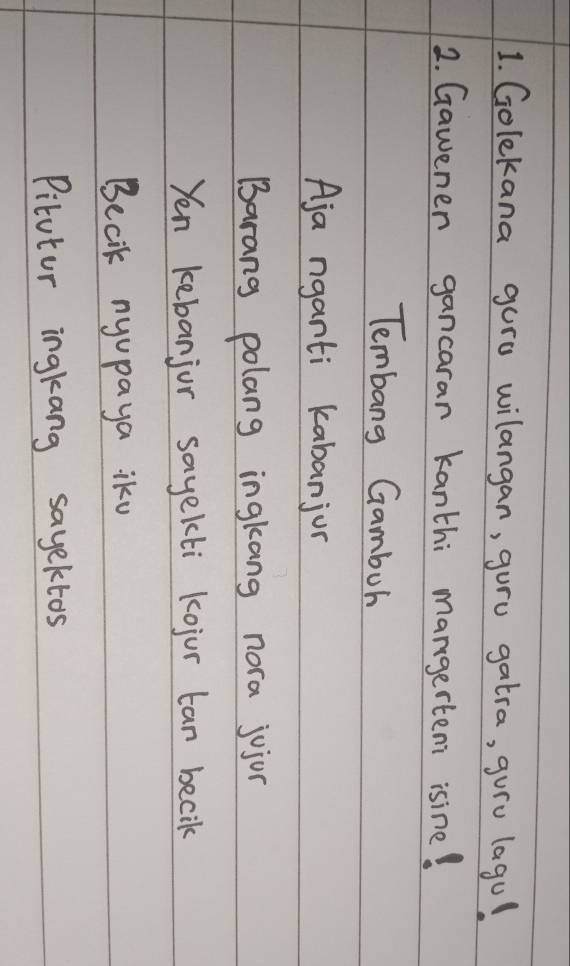 1. Golekana guru wilangan, guru gatra, guru lagu!
2. Gawenen gancaran kanthi mangerteni isine!
Tembang Gambuh
Aja nganti kabanjur
Barang polang ingkang nora jujur
Yen kebanjur sayekti kojur tan becik
Becik nyupaya iku
Pitutur ingkang sayektos